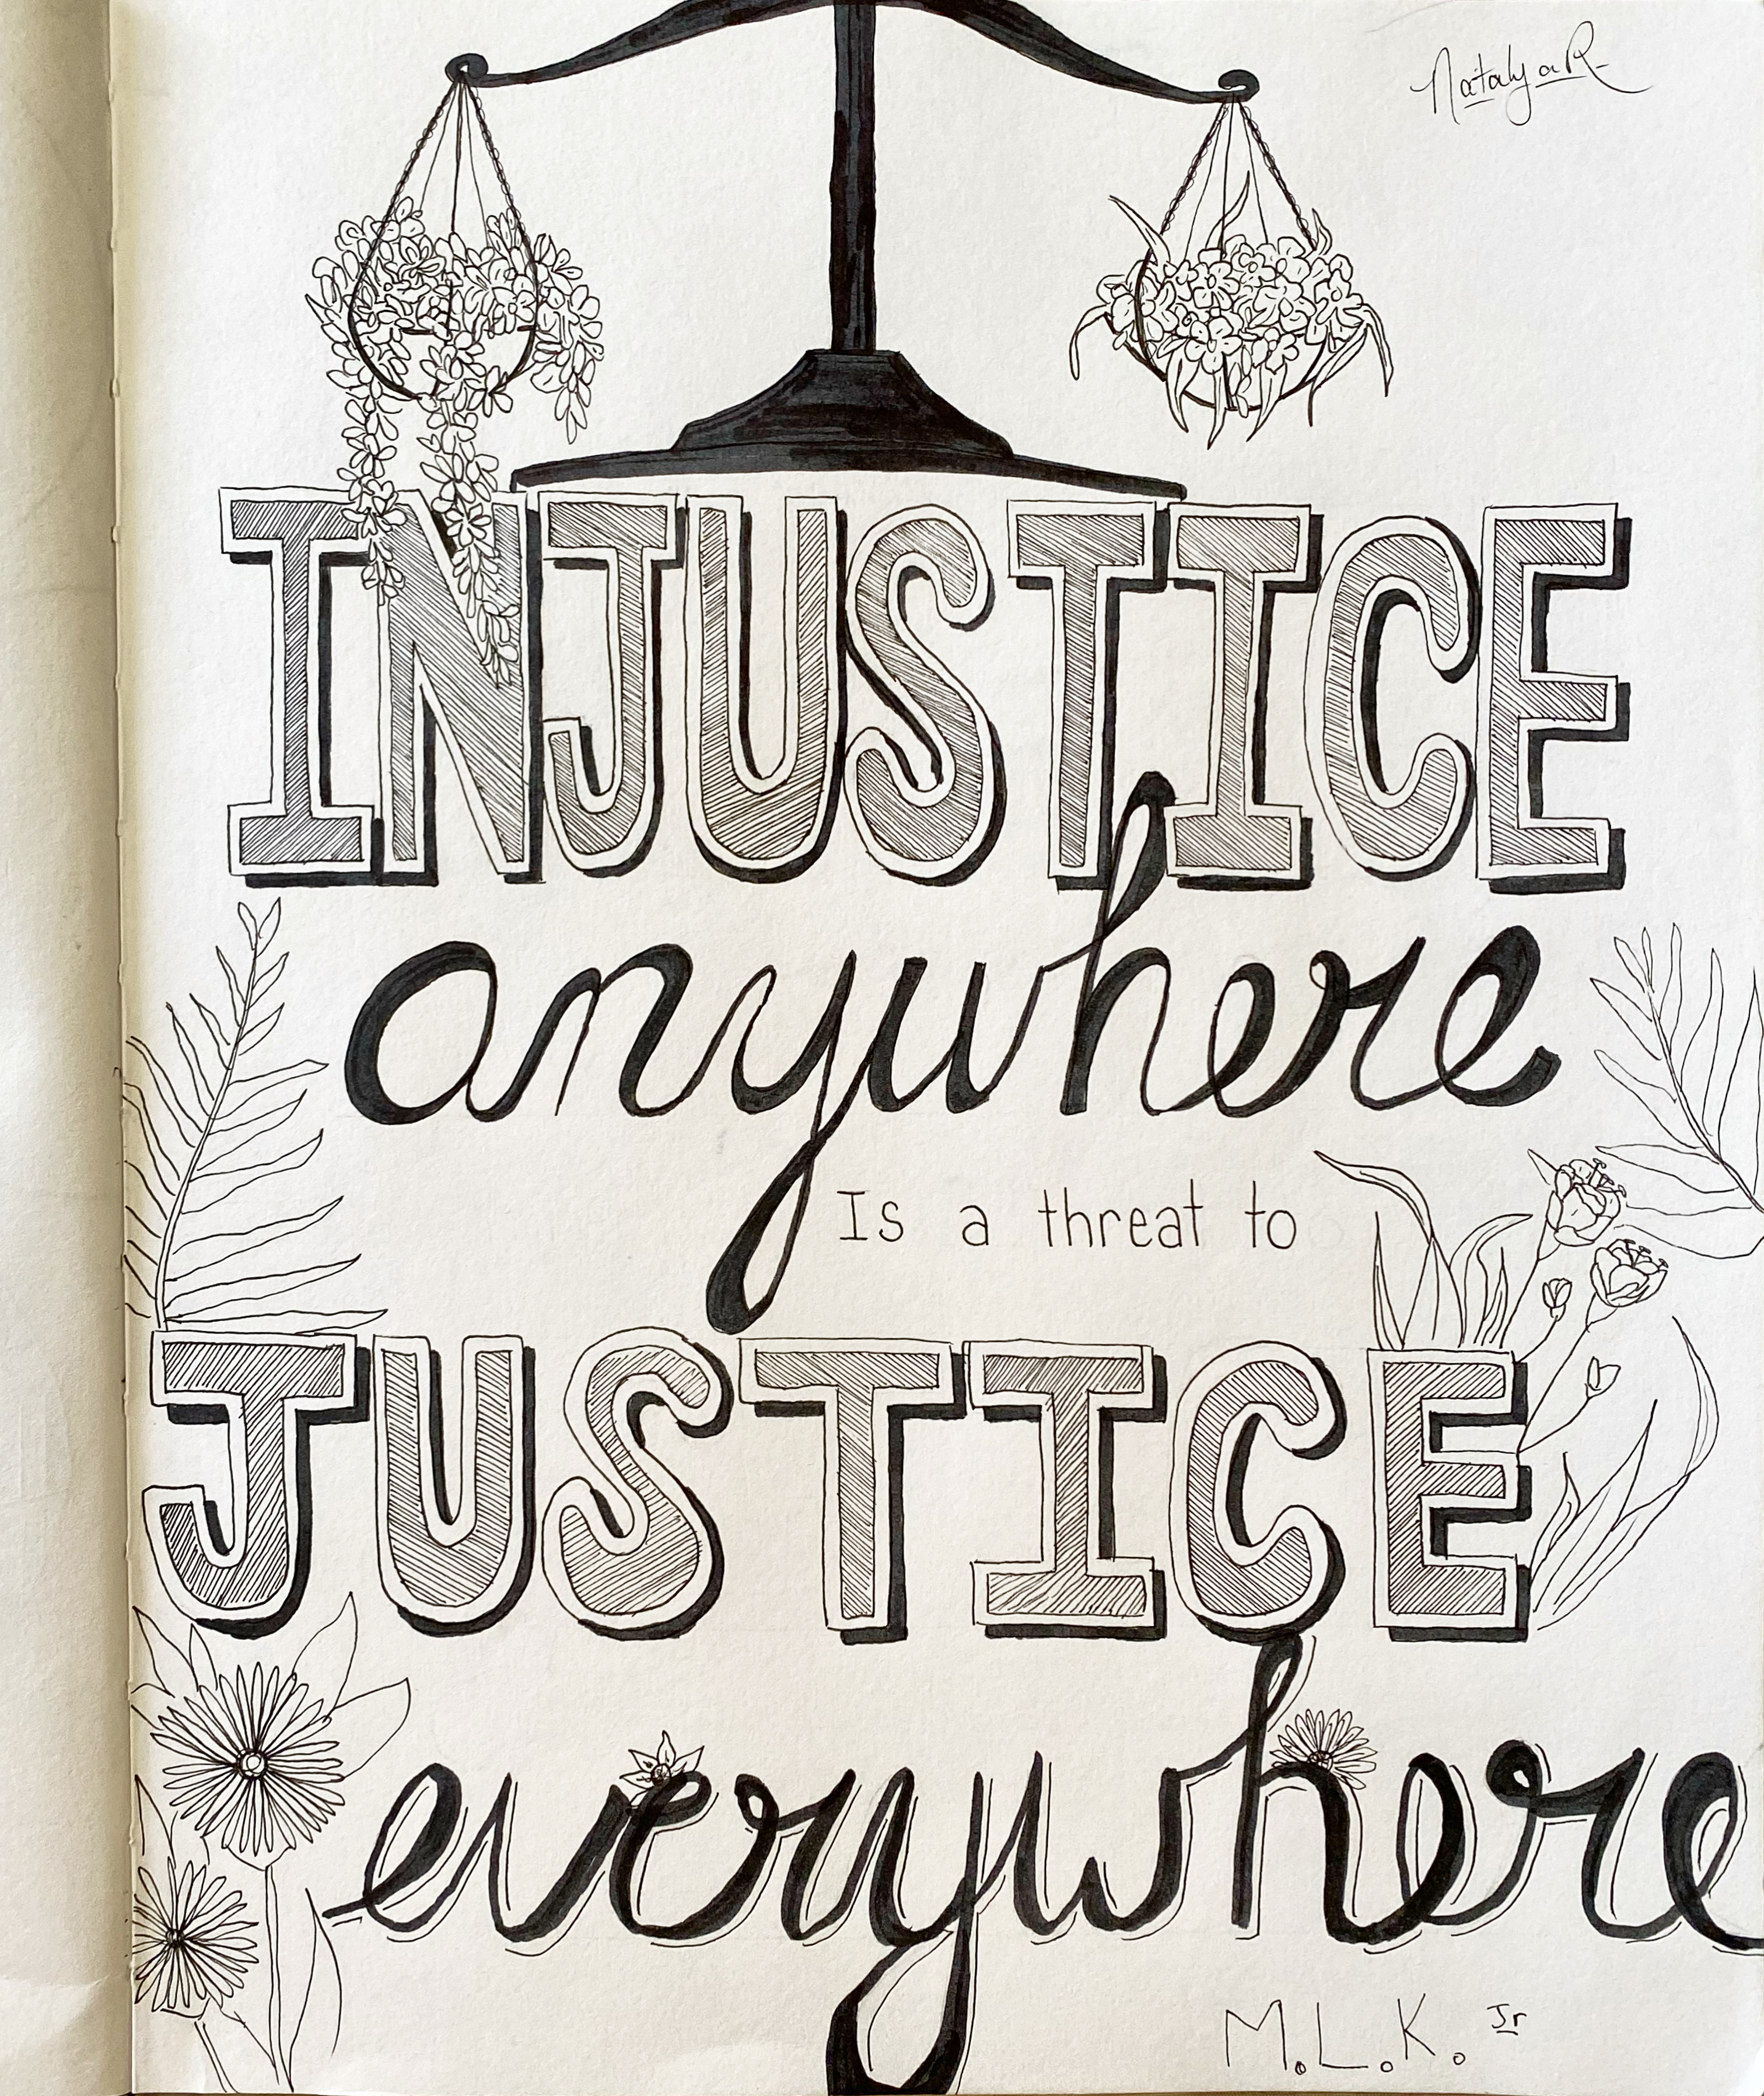 Natalya R
INJUSTICE
anywhere
Is a threat to
JUSTICE
everywhere
M.L.K. Jr